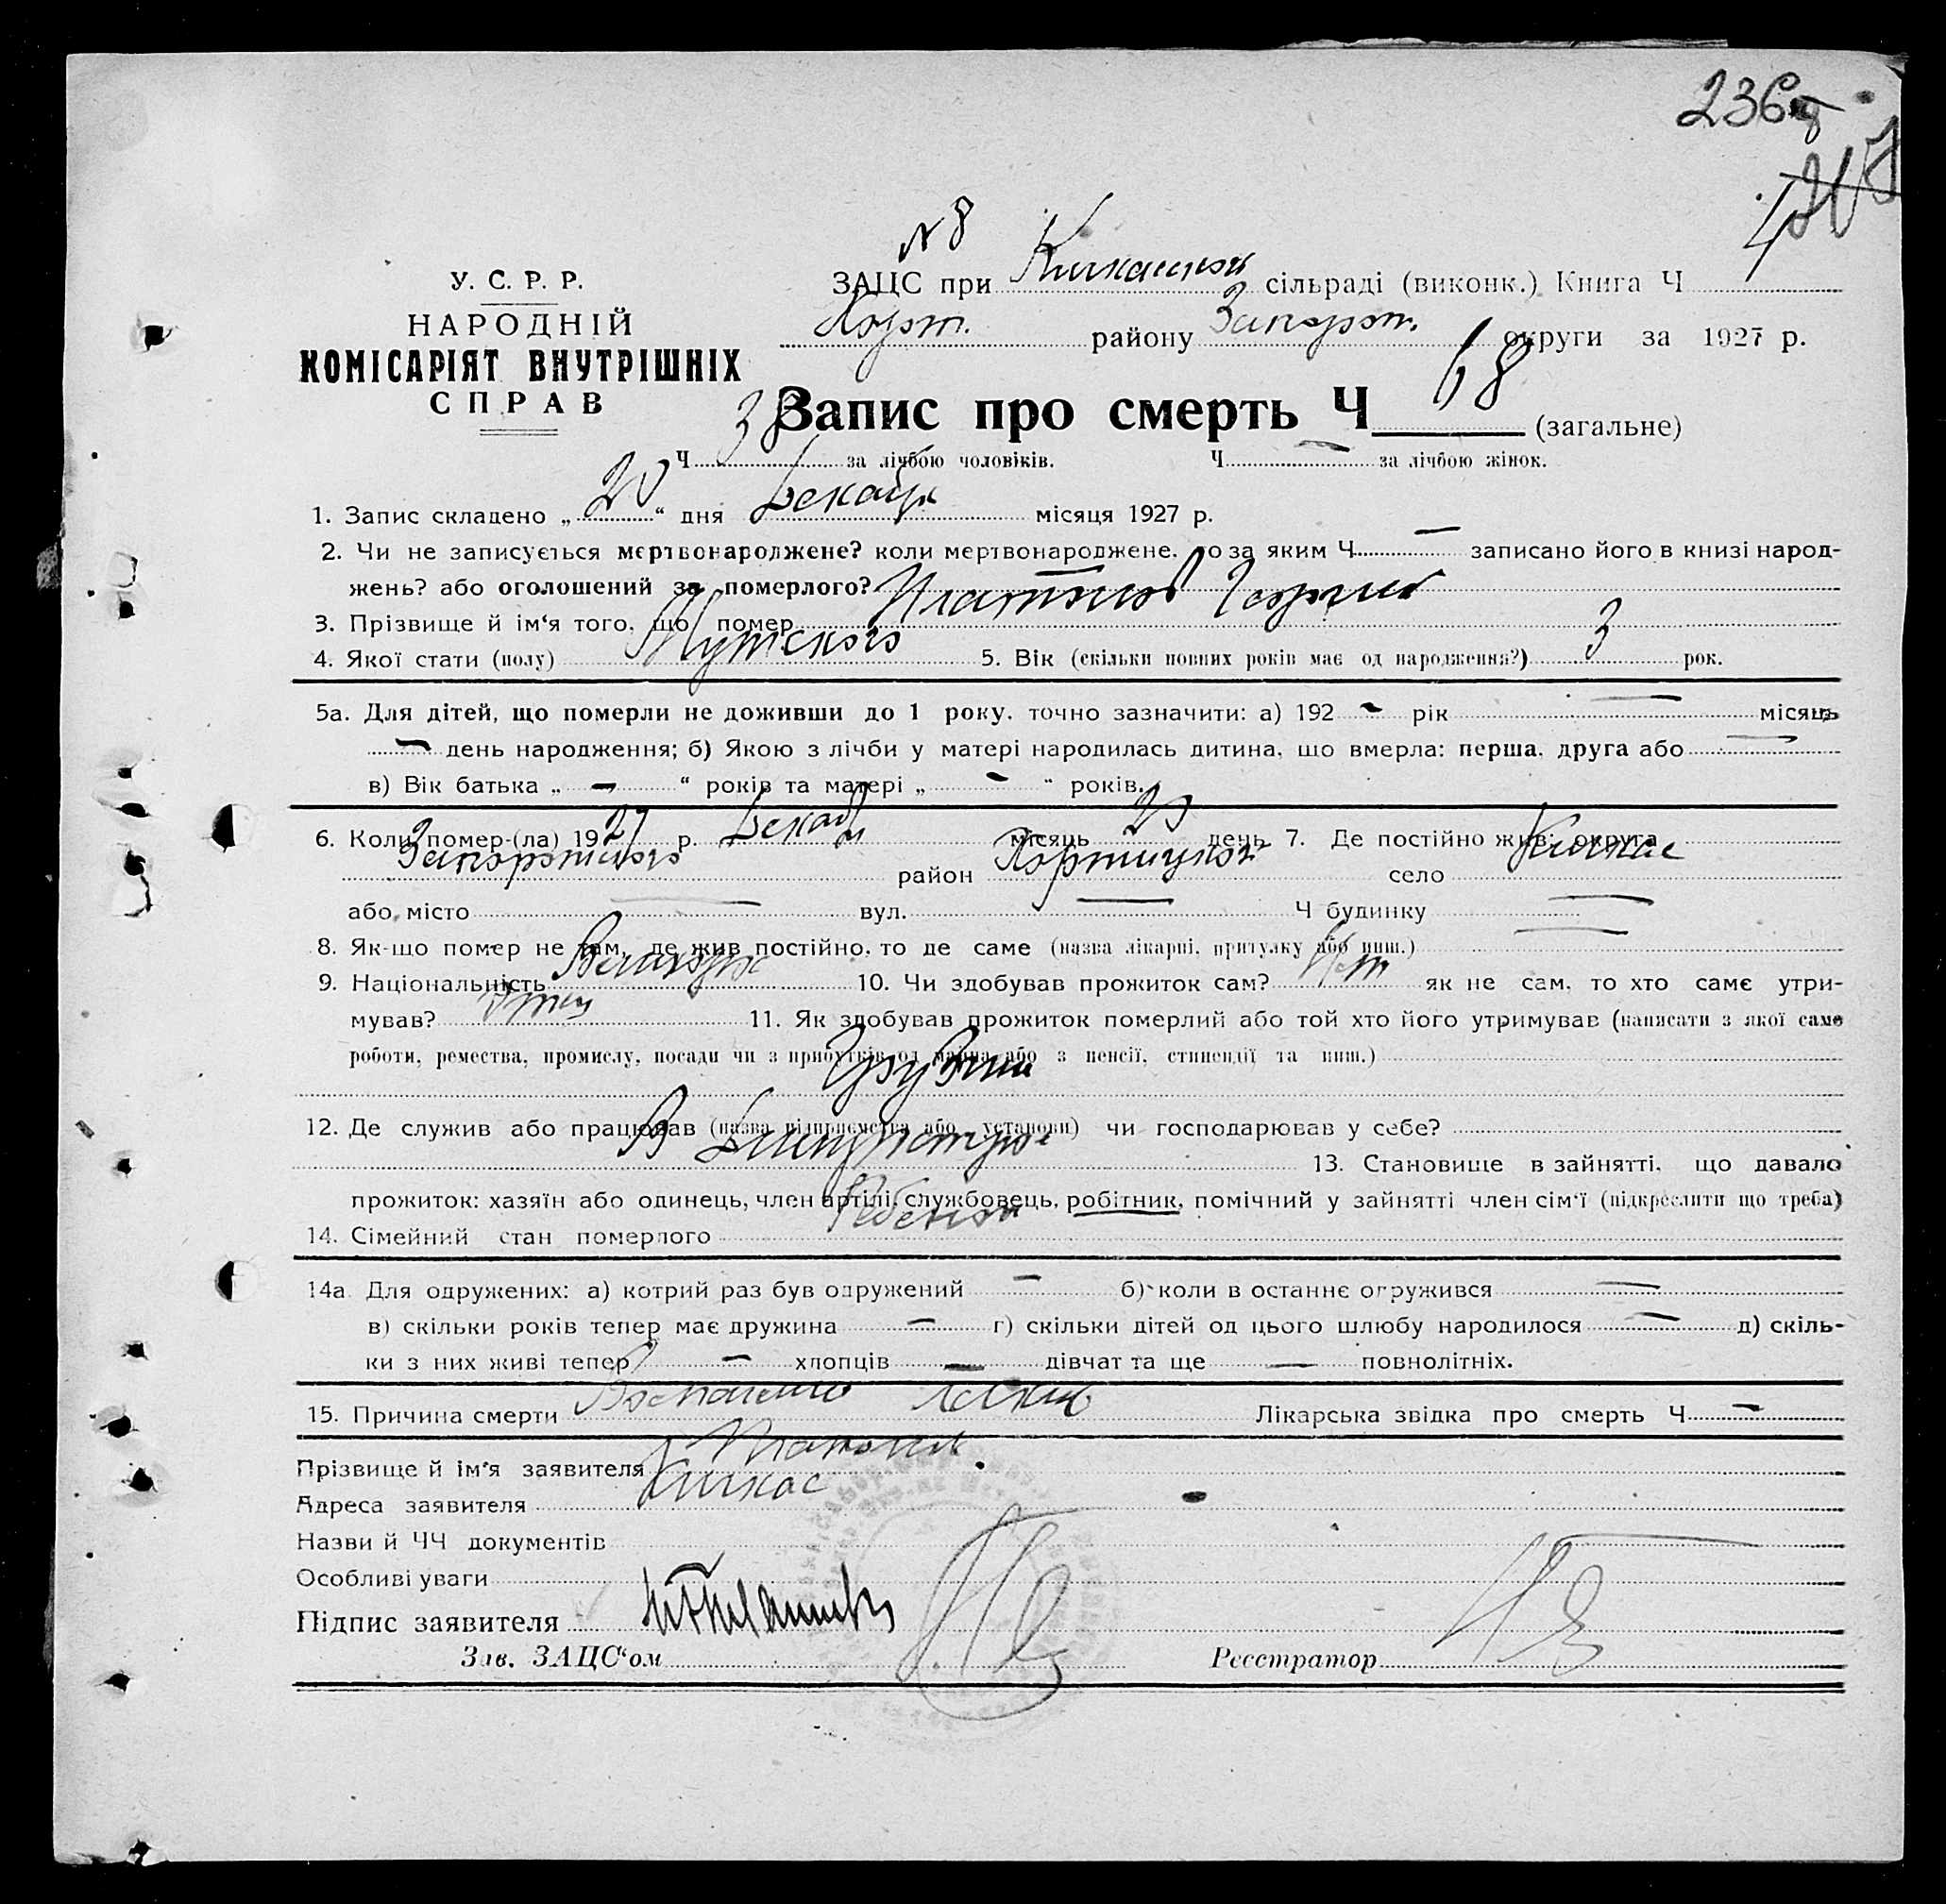 236
N 8
У. С. Р. Р.
НАРОДНІЙ
КОМІСАРІЯТ ВНУТРІШНІХ
СПРАВ
ЗАЦС при Кичкасской сільраді (виконк.) Книга Ч
Хорт. району Запорож. округи за 1927 р.
Запис про смерть Ч 68 (загальне)
Ч 38 за лічбою чоловіків. Ч — за лічбою жінок.
1. Запис складено „ 20 “ дня Декабря місяця 1927 р.
2. Чи не записується мертвонароджене? коли мертвонароджене, то за яким Ч — записано його в книзі народ-
жень? або оголошений за померлого? —
3. Прізвище й ім‘я того, що помер Платонов Георгий
4. Якої стати (полу) Мужского 5. Вік (скільки повних років має од народження?) 3 рок.
5а. Для дітей, що померли не доживши до 1 року, точно зазначити: а) 192 - рік — місяць
— день народження; б) Якою з лічби у матері народилась дитина, що вмерла: перша, друга або —
в) Вік батька „ — “ років та матері „ - “ років.
6. Коли помер-(ла) 1927 р. Декабр місяць 20 день 7. Де постійно жив: округа
Запорожского район Хортицкой село Кичкас
або місто — вул. — Ч будинку —
8. Як-що помер не там, де жив постійно, то де саме (назва лікарні, притулку або инш.) —
9. Національність Великорос 10. Чи здобував прожиток сам? Нет як не сам, то хто саме утри-
мував? Отец 11. Як здобував прожиток померлий або той хто його утримував (написати з якої саме
роботи, ремества, промислу, посади чи з прибутків од майна або з пенсії, стипендії та инш.)
Грузчик
12. Де служив або працював (назва підприємства або установи) чи господарював у себе?
В Днепрострое 13. Становище в зайнятті, що давало
прожиток: хазяїн або одинець, член артілі, службовець, робітник, помічний у зайнятті член сім‘ї (підкреслити що треба)
14. Сімейний стан померлого Ребенок
14а. Для одружених: а) котрий раз був одружений — б) коли в останнє одружився —
в) скільки років тепер має дружина — г) скільки дітей од цього шлюбу народилося — д) скіль-
ки з них живі тепер — хлопців — дівчат та ще — повнолітніх.
15. Причина смерти Воспаление легких Лікарська звідка про смерть Ч —
Прізвище й ім‘я заявителя Платонов
Адреса заявителя Кичкас
Назви й ЧЧ документів
Особливі уваги
Підпис заявителя
Зав. ЗАЦС‘ом Реєстратор